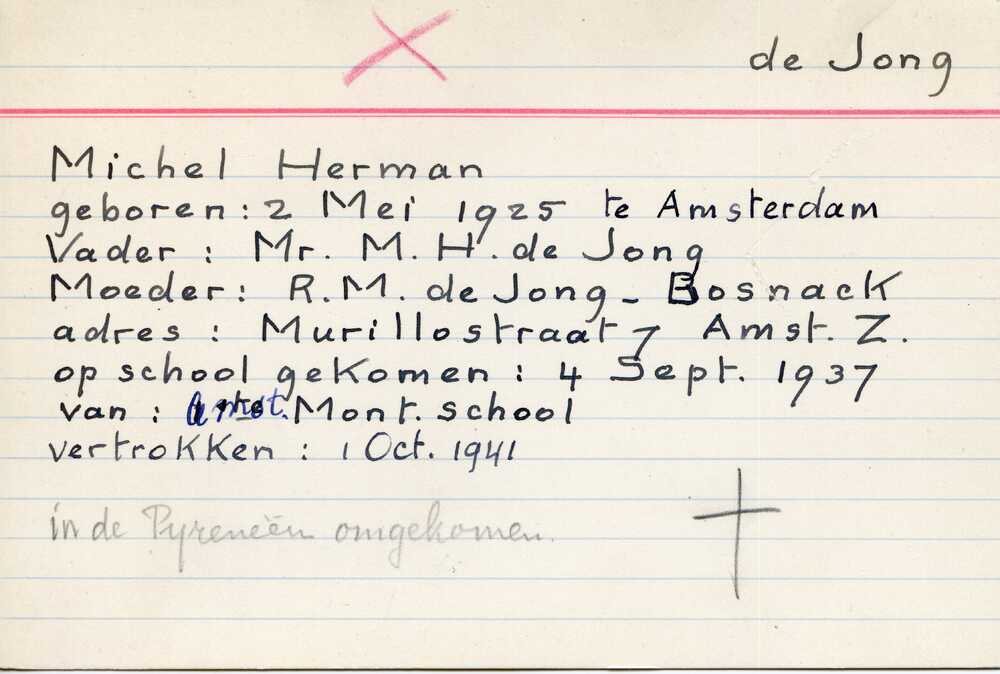 de Jong
Michel Herman
geboren: 2 Mei 1925 te Amsterdam
Vader: Mr. M. H. de Jong
Moeder: R.M. de Jong - Bosnack
adres: Murillostraat 7 Amst. Z.
op school gekomen: 4 Sept. 1937
van: Amst. Mont. school
vertrokken: 1 Oct. 1941
in de Pyreneën omgekomen.